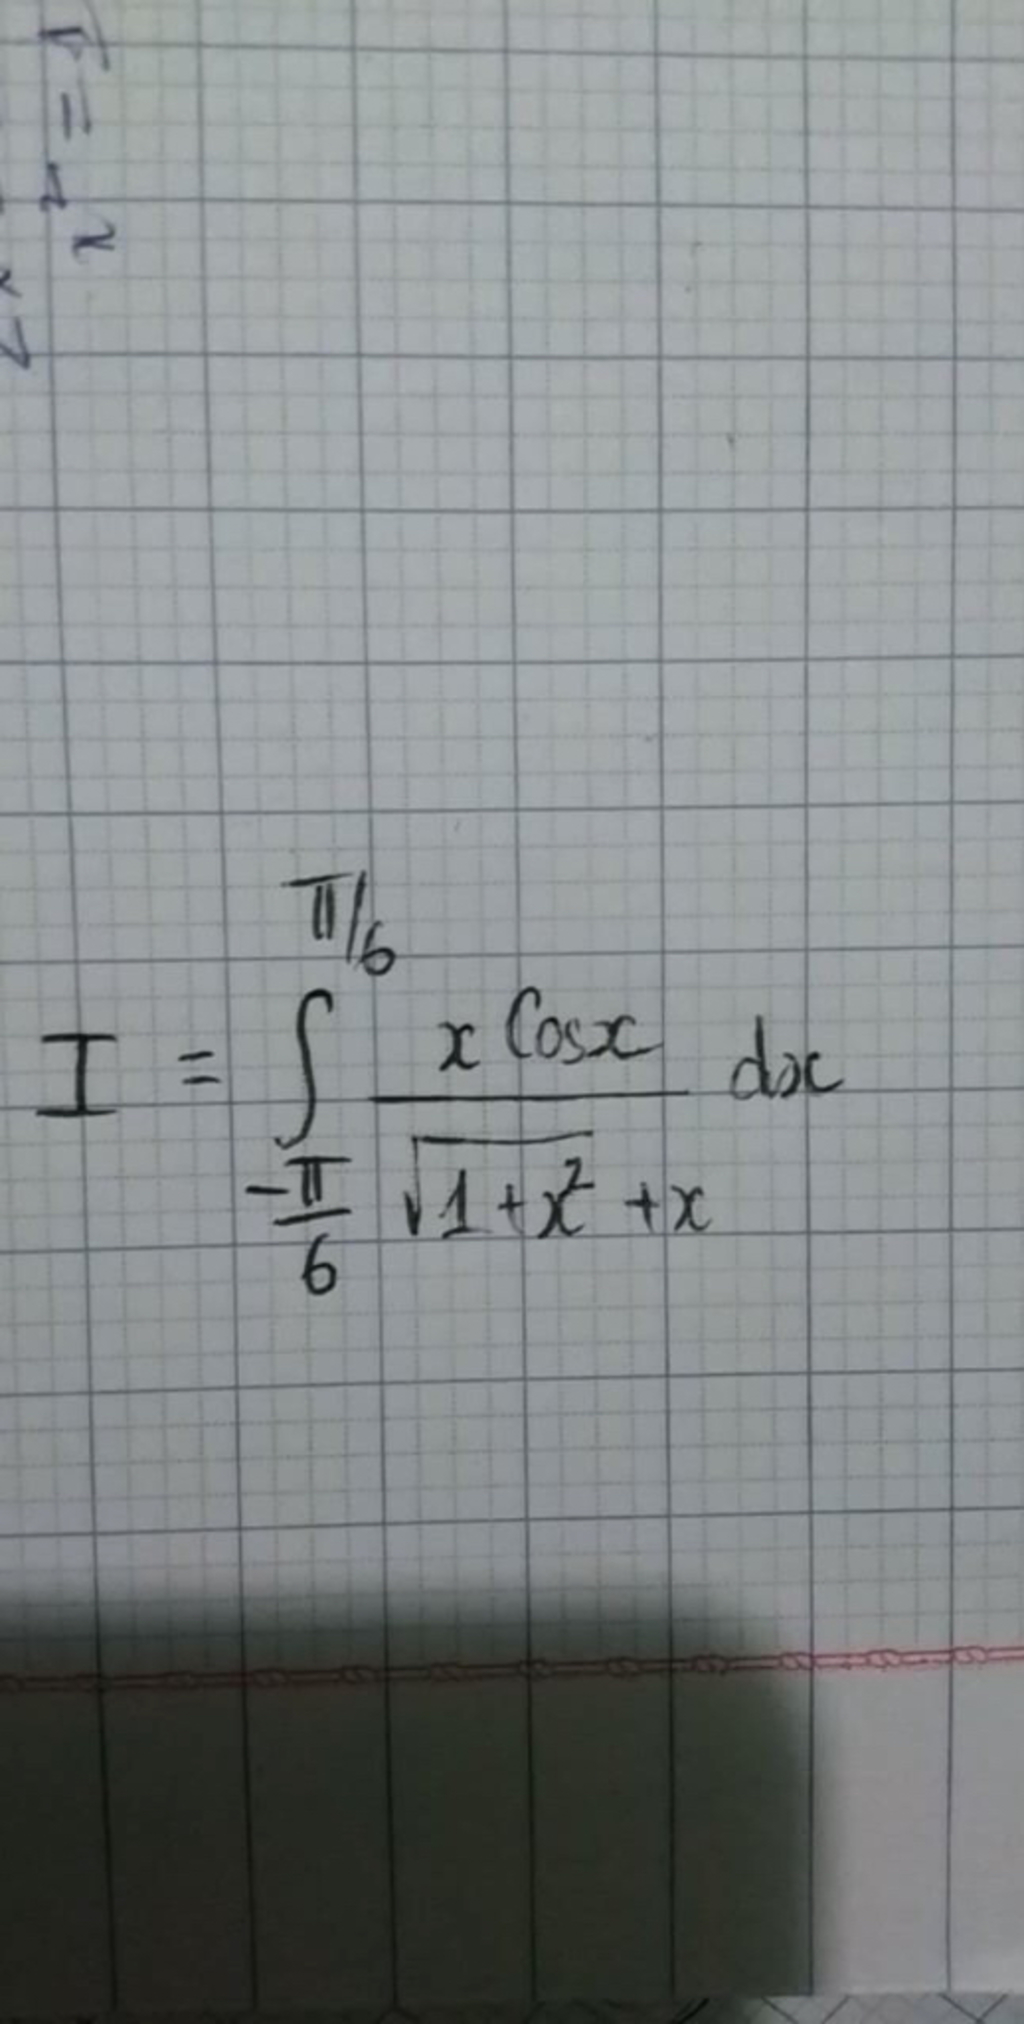 x² = 1
I = ∫_{-π/6}^{π/6} \frac{x Cosx}{\sqrt{1+x²} + x} dx